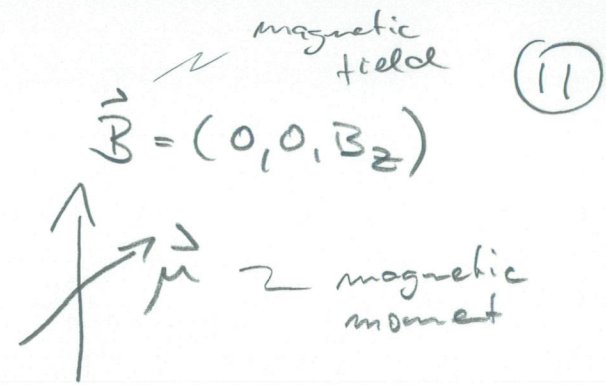 magnetic
field
11
B⃗ = (0,0,B_z)
μ⃗ magnetic
moment